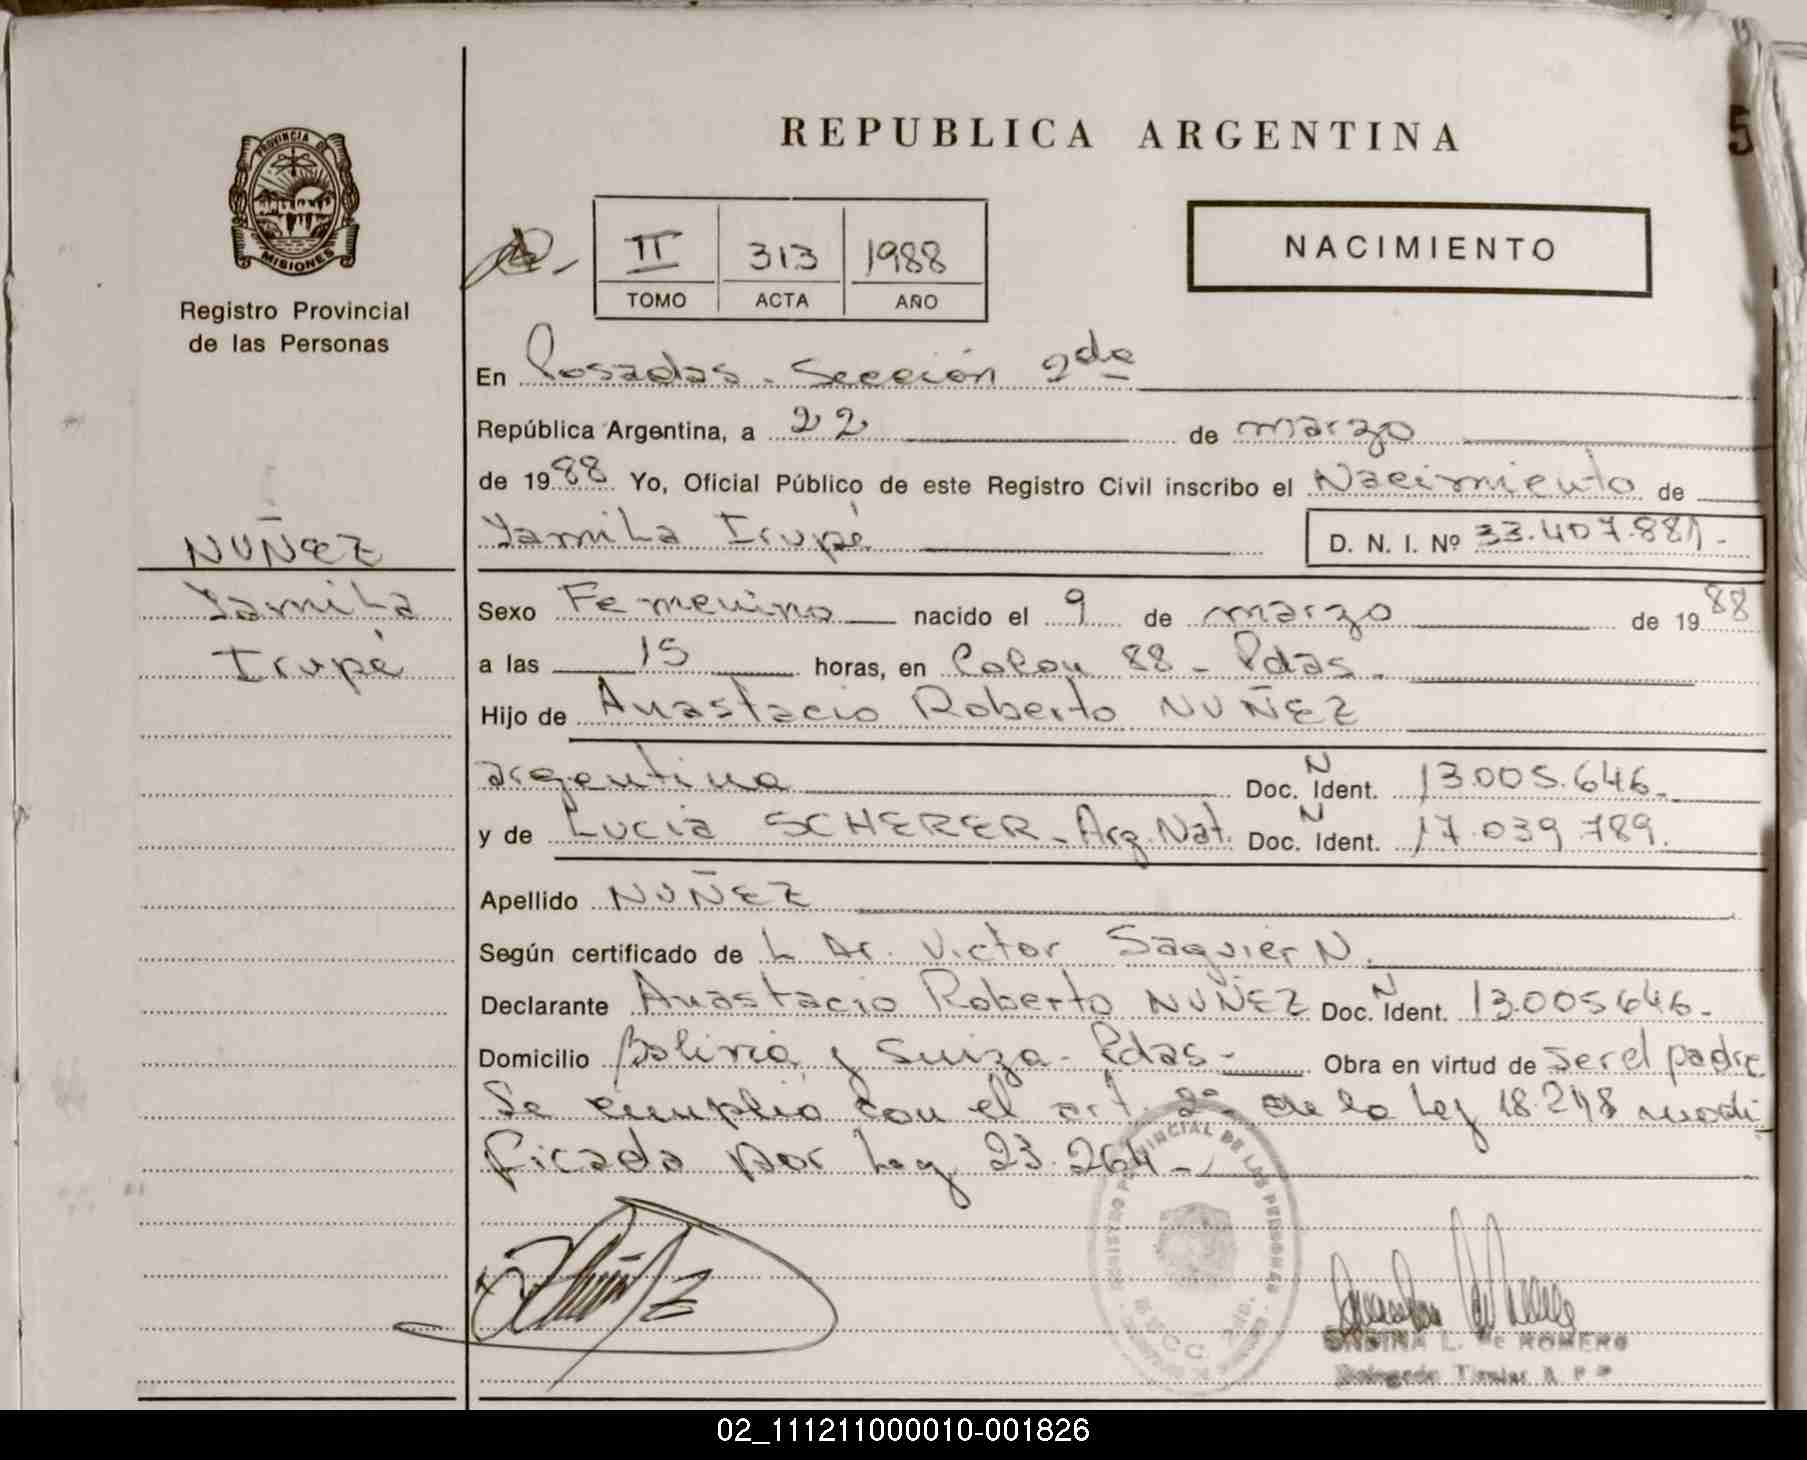 REPUBLICA ARGENTINA
5
PROVINCIA DE
MISIONES
Registro Provincial
de las Personas
II 313 1988
TOMO ACTA AÑO
NACIMIENTO
En Posadas - Sección 2da
República Argentina, a 22 de marzo
de 1988 Yo, Oficial Público de este Registro Civil inscribo el Nacimiento de
Yamila Irupé D. N. I. Nº 33.407.881.-
NUÑEZ
Yamila
Irupé
Sexo Femenino nacido el 9 de marzo de 1988
a las 15 horas, en Colon 88 - Pdas.
Hijo de Anastacio Roberto NUÑEZ
argentina Doc. N Ident. 13.005.646.-
y de Lucia SCHERER - Arg. Nat. Doc. N Ident. 17.039.789.
Apellido NUÑEZ
Según certificado de L Dr. Victor Saguier N.
Declarante Anastacio Roberto NUÑEZ Doc. N Ident. 13.005646.-
Domicilio Bolivia y Suiza - Pdas - Obra en virtud de ser el padre
Se cumplió con el art. 2º de la Ley 18.248 modi-
ficada por Ley 23.264 -
REGISTRO PROVINCIAL DE LAS PERSONAS
L. de ROMERO
Titular
02_111211000010-001826